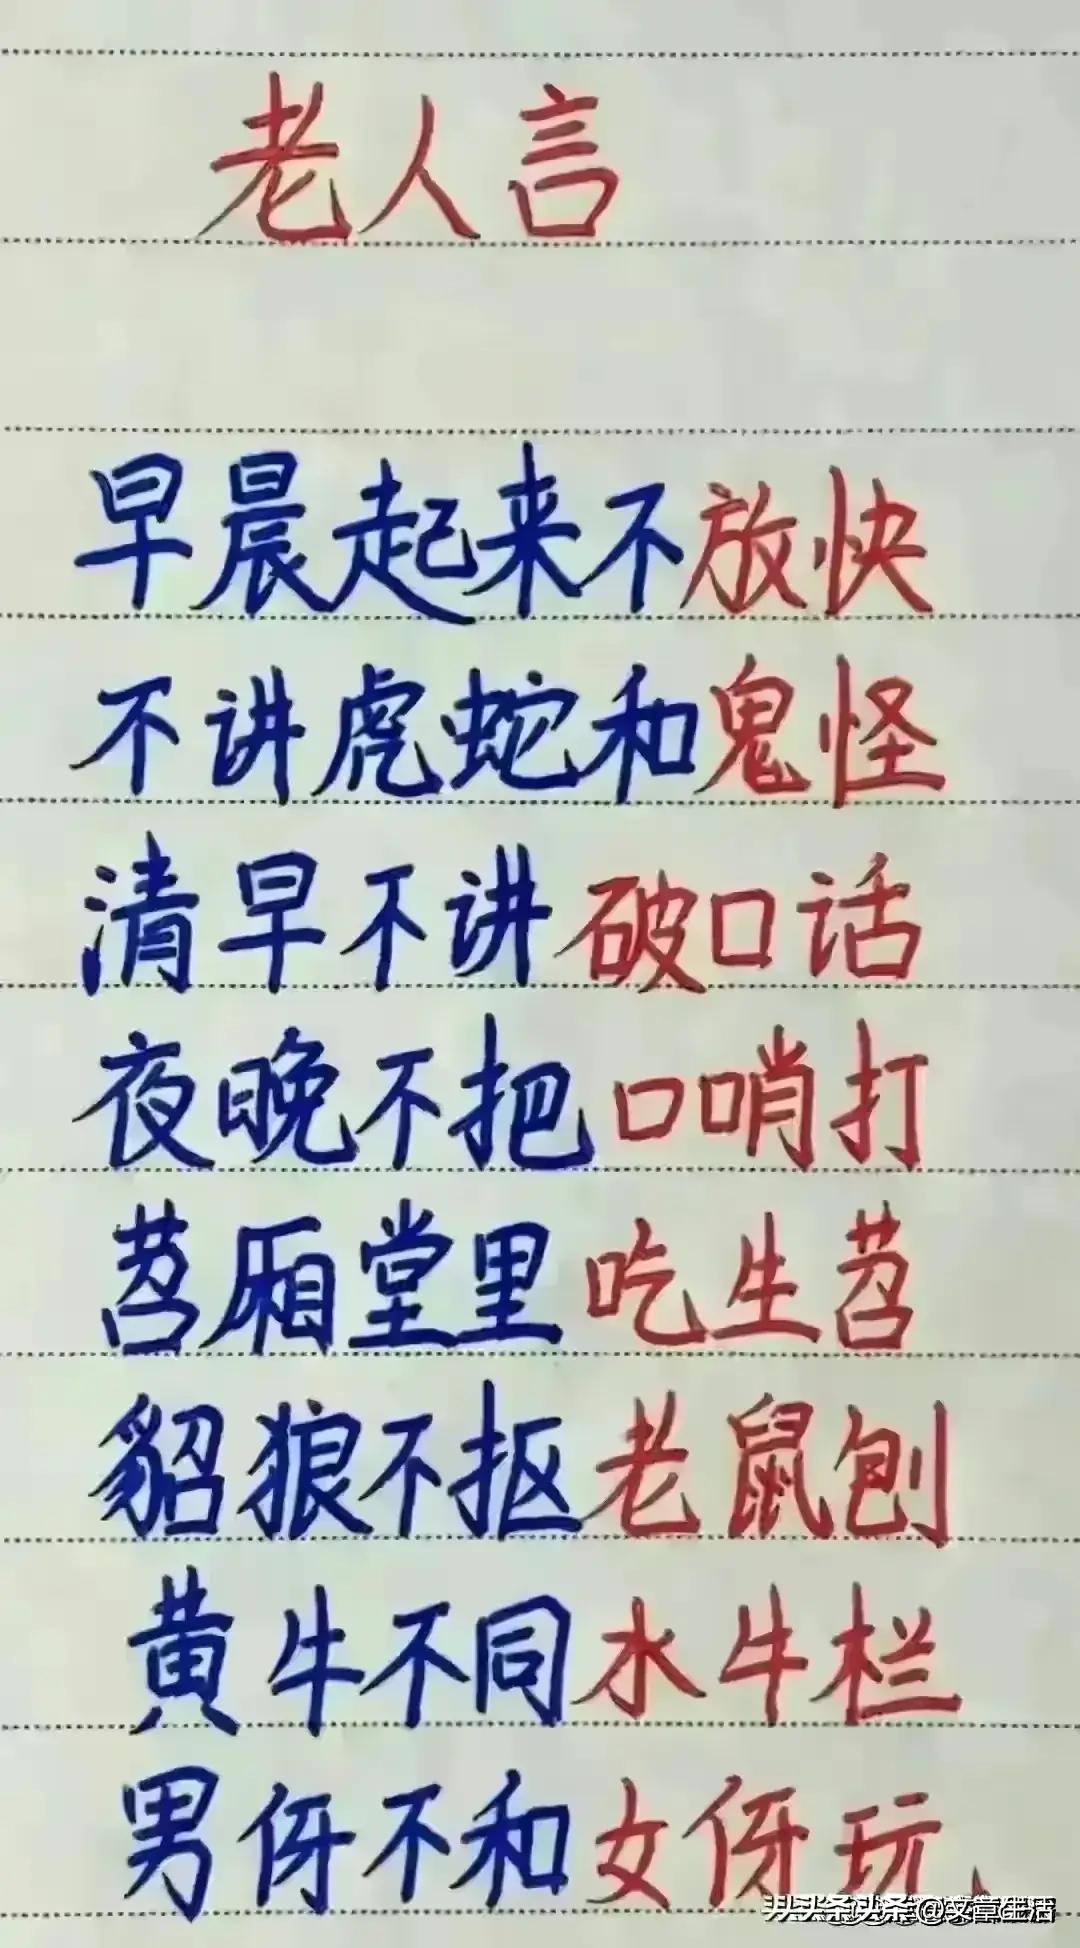 老人言
早晨起来不放快
不讲虎蛇和鬼怪
清早不讲破口话
夜晚不把口哨打
苕厢堂里吃生苕
貂狼不抠老鼠刨
黄牛不同水牛栏
男伢不和女伢玩、
头条@文章生活